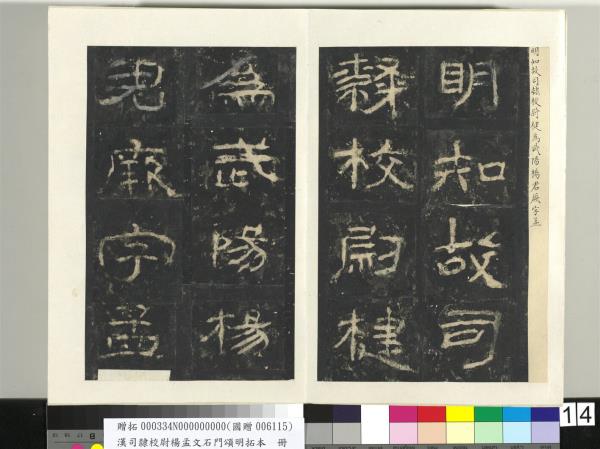 明知故司隸校尉楗為武陽楊君厥字孟
明知故司
隸校尉楗
為武陽楊
君厥字孟
贈拓 000334N000000000(國贈 006115)
漢司隸校尉楊孟文石門頌明拓本 冊
14
B